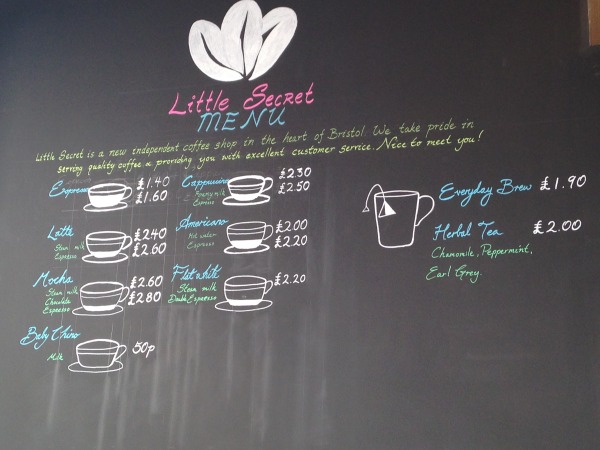 Little Secret
MENU
Little Secret is a new independent coffee shop in the heart of Bristol. We take pride in
serving quality coffee & providing you with excellent customer service. Nice to meet you!
Espresso £1.40
£1.60
Cappuccino £2.30
Foamy milk £2.50
Espresso
Latte £2.40
Steam milk £2.60
Espresso
Americano £2.00
Hot water £2.20
Espresso
Mocha £2.60
Steam milk £2.80
Chocolate
Espresso
Flat white £2.20
Steam milk
Double Espresso
Baby Chino
Milk 50p
Everyday Brew £1.90
Herbal Tea £2.00
Chamomile, Peppermint,
Earl Grey.